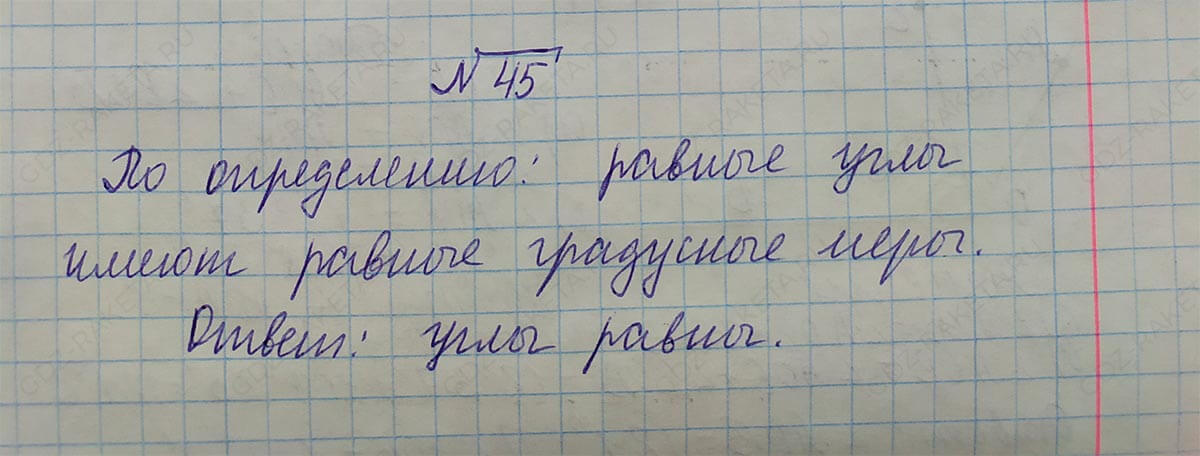 № 45
По определению: равные углы
имеют равные градусные меры.
Ответ: углы равны.